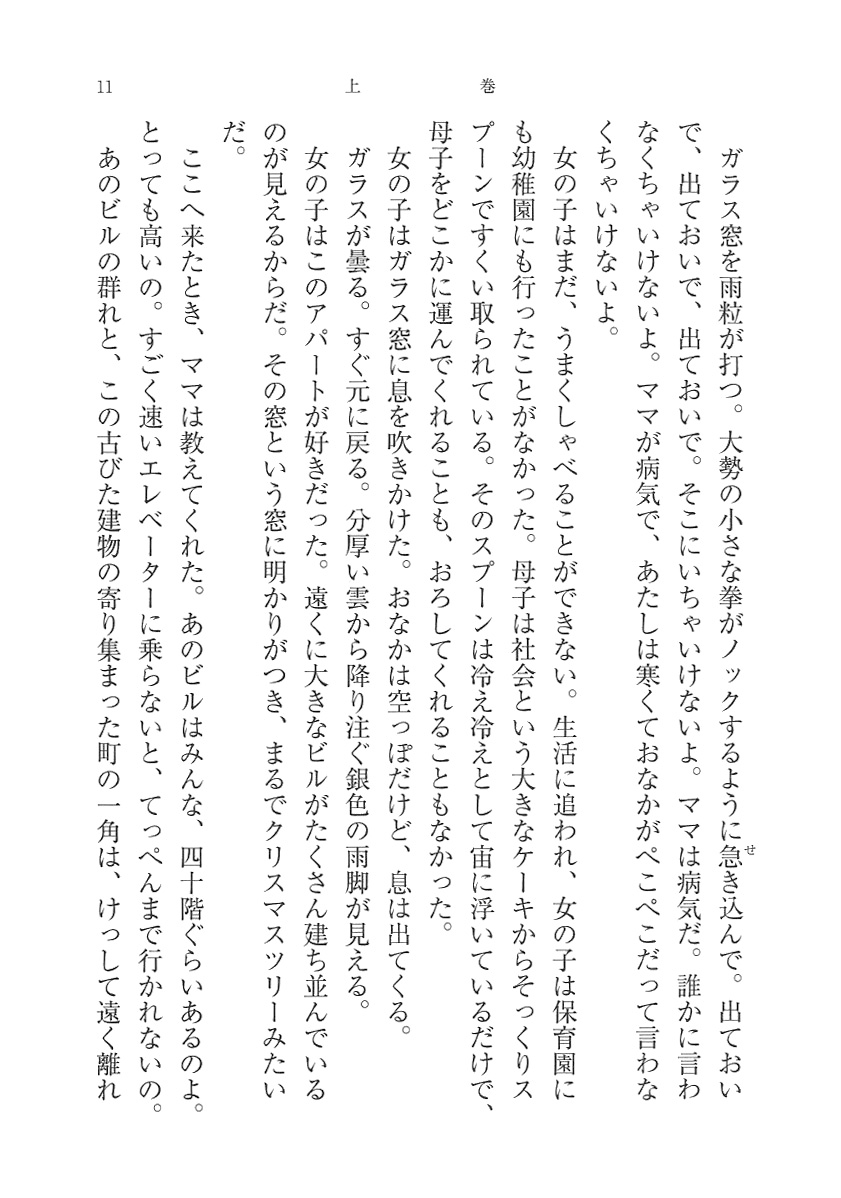 11
上巻
ガラス窓を雨粒が打つ。大勢の小さな拳がノックするように急き込んで。出ておい
せ
で、出ておいで、出ておいで。そこにいちゃいけないよ。ママは病気だ。誰かに言わ
なくちゃいけないよ。ママが病気で、あたしは寒くておなかがぺこぺこだって言わな
くちゃいけないよ。
女の子はまだ、うまくしゃべることができない。生活に追われ、女の子は保育園に
も幼稚園にも行ったことがなかった。母子は社会という大きなケーキからそっくりス
プーンですくい取られている。そのスプーンは冷え冷えとして宙に浮いているだけで、
母子をどこかに運んでくれることも、おろしてくれることもなかった。
女の子はガラス窓に息を吹きかけた。おなかは空っぽだけど、息は出てくる。
ガラスが曇る。すぐ元に戻る。分厚い雲から降り注ぐ銀色の雨脚が見える。
女の子はこのアパートが好きだった。遠くに大きなビルがたくさん建ち並んでいる
のが見えるからだ。その窓という窓に明かりがつき、まるでクリスマスツリーみたい
だ。
ここへ来たとき、ママは教えてくれた。あのビルはみんな、四十階ぐらいあるのよ。
とっても高いの。すごく速いエレベーターに乗らないと、てっぺんまで行かれないの。
あのビルの群れと、この古びた建物の寄り集まった町の一角は、けっして遠く離れ